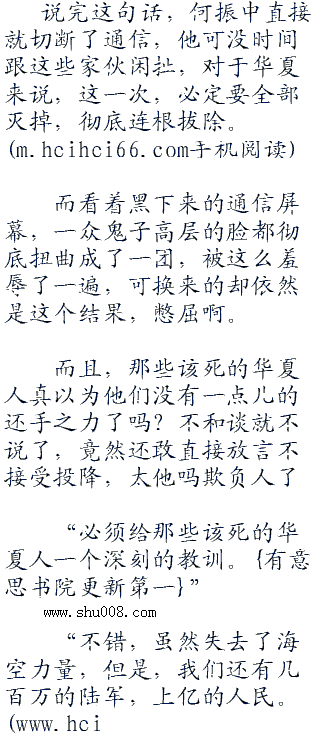 说完这句话，何振中直接
就切断了通信，他可没时间
跟这些家伙闲扯，对于华夏
来说，这一次，必定要全部
灭掉，彻底连根拔除。
(m.hcihci66.com手机阅读)
而看着黑下来的通信屏
幕，一众鬼子高层的脸都彻
底扭曲成了一团，被这么羞
辱了一遍，可换来的却依然
是这个结果，憋屈啊。
而且，那些该死的华夏
人真以为他们没有一点儿的
还手之力了吗？不和谈就不
说了，竟然还敢直接放言不
接受投降，太他吗欺负人了
“必须给那些该死的华
夏人一个深刻的教训。{有意
思书院更新第一}”
www.shu008.com
“不错，虽然失去了海
空力量，但是，我们还有几
百万的陆军，上亿的人民。
(www.hci